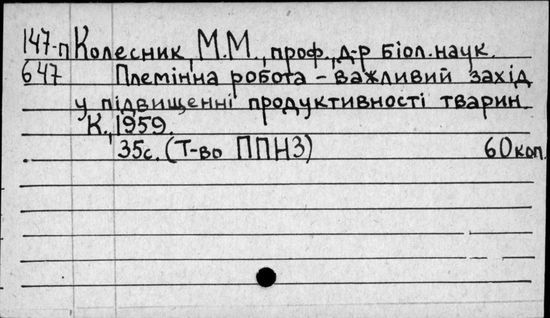 147-п Колесник, М.М., проф., д-р біол. наук.
647 Племінна робота – важливий захід
у підвищенні продуктивності тварин.
К., 1959.
35с. (Т-во ППНЗ) 60 коп.